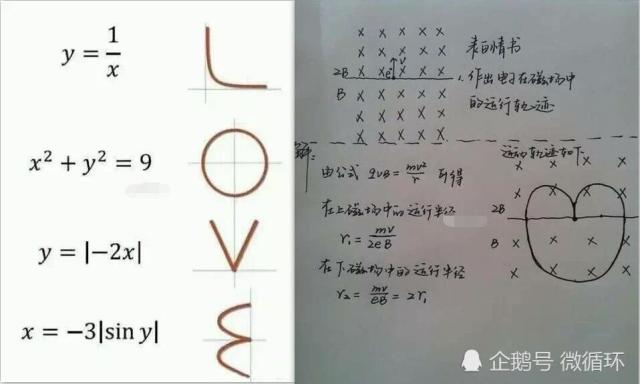 y = 1/x
x² + y² = 9
y = |−2x|
x = −3|sin y|
× × × × ×
× × × × ×
2B × × e × × v
B × × × × ×
× × × × ×
× × × × ×
表白情书
1. 作出电子在磁场中
的运行轨迹
解:
由公式 qvB = mv²/r 可得
在上磁场中的运行半径
r₁ = mv/2eB
在下磁场中的运行半径
r₂ = mv/eB = 2r₁
运动轨迹如下
× × × ×
× × × ×
2B
B × × × ×
× × × ×
企鹅号 微循环